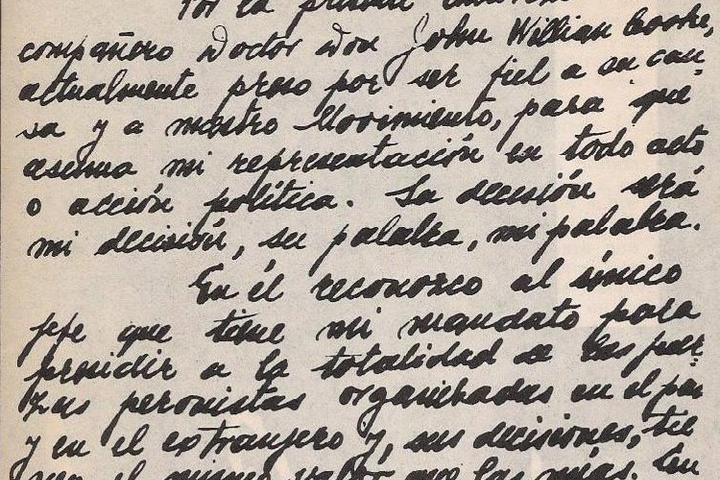 Por la presente
compañero Doctor Don John William Cooke,
actualmente preso por ser fiel a su cau-
sa y a nuestro Movimiento, para que
asuma mi representación en todo acto
o acción política. Su decisión será
mi decisión, su palabra, mi palabra.
En él reconozco al único
jefe que tiene mi mandato para
presidir a la totalidad de las fuer-
zas peronistas organizadas en el país
y en el extranjero y, sus decisiones, tie
nen el mismo valor que las mías. En